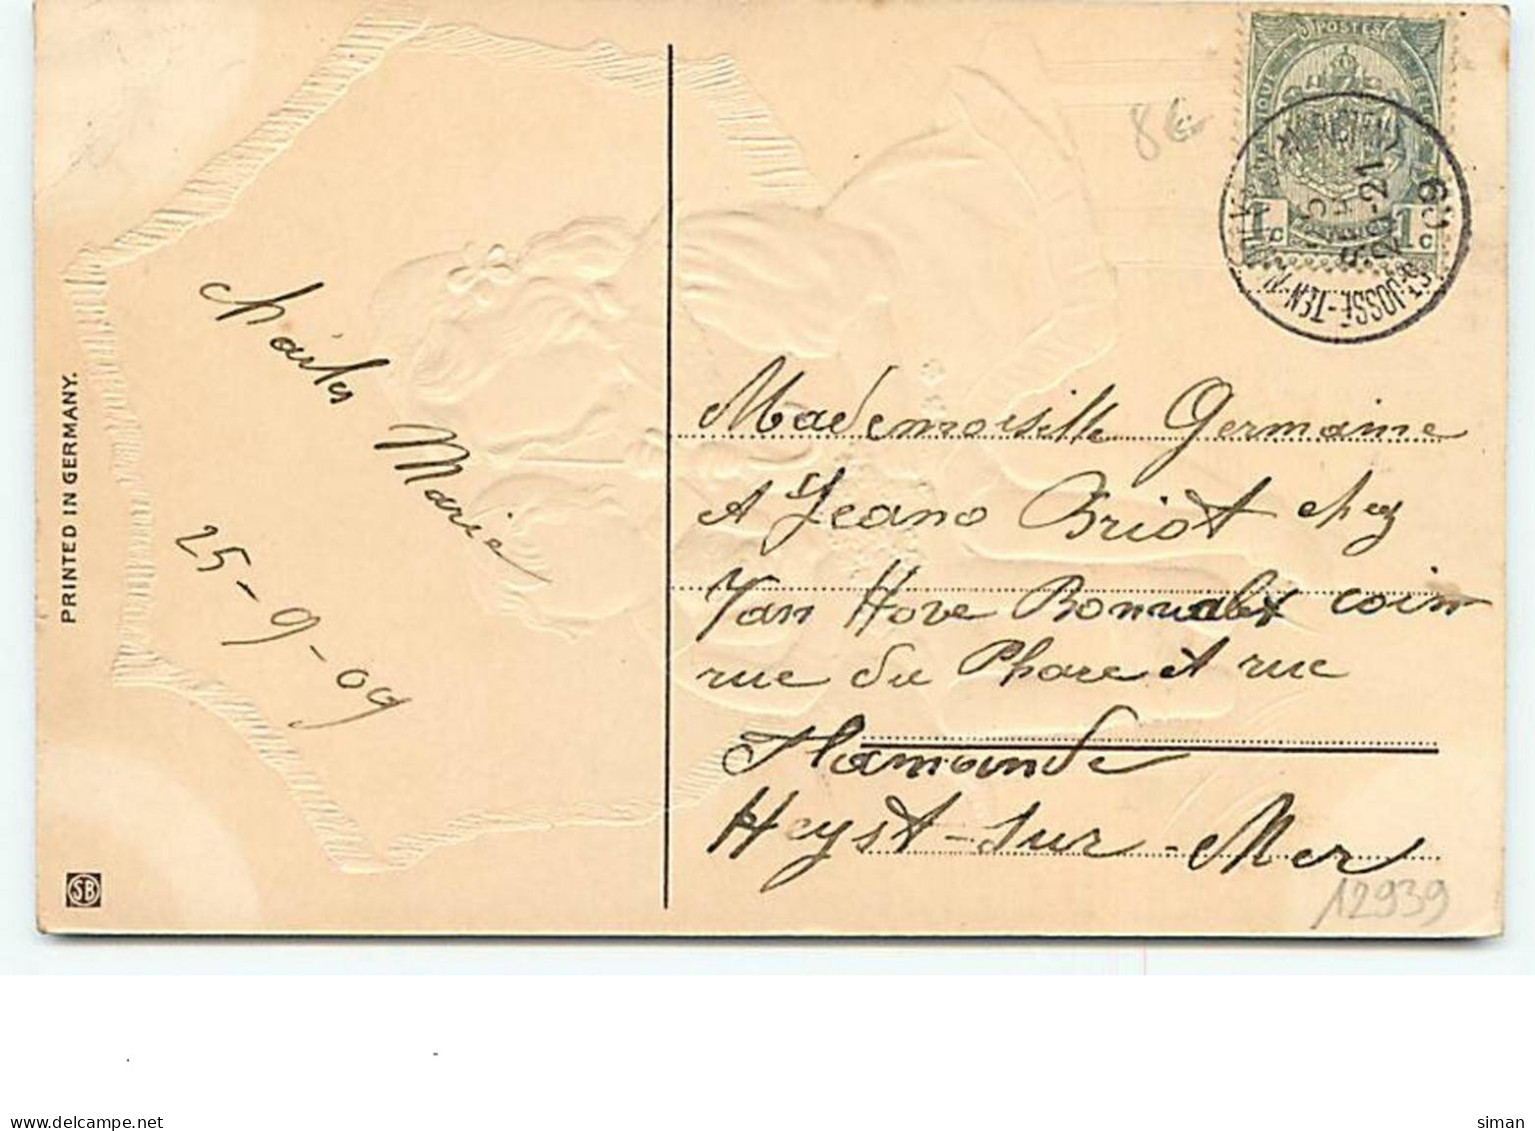 8€
POSTES
BELGIQUE
1c 1c
ST-JOSSE-TEN-N
20-21
09
Charles
Marie
25-9-09
Mademoiselle Germaine
et Jeane Briot chez
Van Hove Bonnalex coin
rue du Phare et rue
Flamande
Heyst-sur-Mer
12939
PRINTED IN GERMANY.
SB
delcampe.net
siman